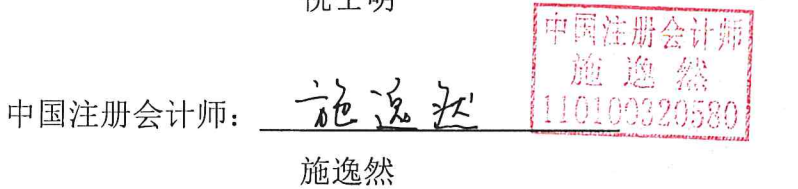 中国注册会计师
施逸然
110100320580
中国注册会计师： 施逸然
施逸然